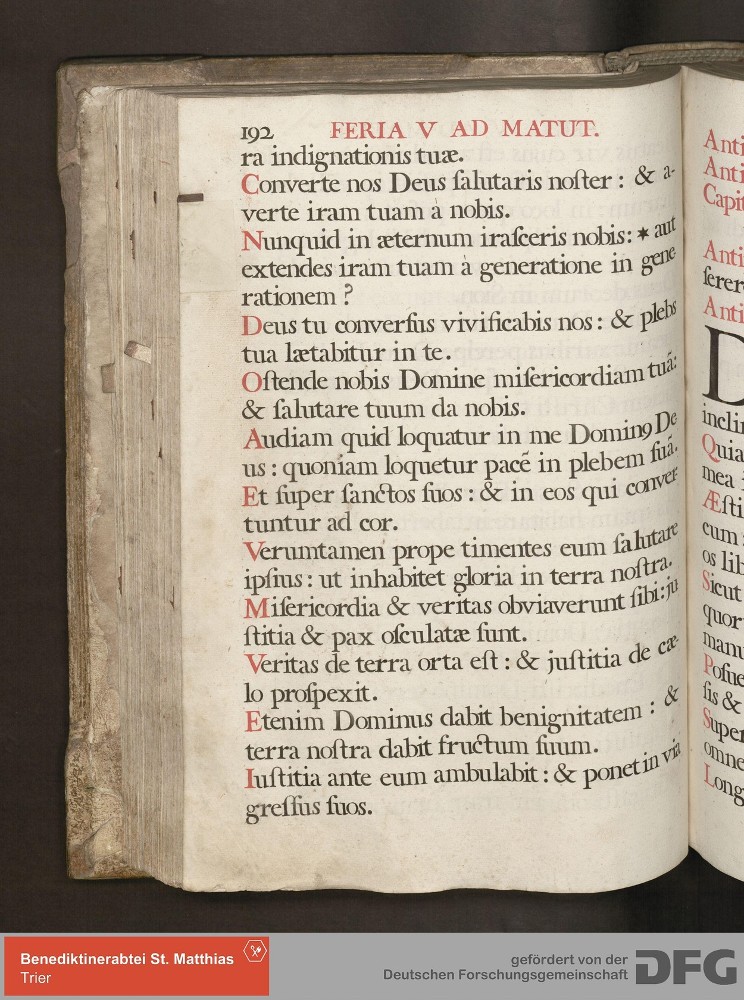 192 FERIA V AD MATUT.
ra indignationis tuæ.
Converte nos Deus ſalutaris noſter : & a-
verte iram tuam à nobis.
Nunquid in æternum iraſceris nobis: ✶ aut
extendes iram tuam à generatione in gene-
rationem ?
Deus tu converſus vivificabis nos : & plebs
tua lætabitur in te.
Oſtende nobis Domine miſericordiam tuã:
& ſalutare tuum da nobis.
Audiam quid loquatur in me Dominꝰ De-
us : quoniam loquetur pacẽ in plebem ſuã.
Et ſuper ſanctos ſuos : & in eos qui conver-
tuntur ad cor.
Verumtamen prope timentes eum ſalutare
ipſius : ut inhabitet gloria in terra noſtra.
Miſericordia & veritas obviaverunt ſibi : ju
ſtitia & pax oſculatæ ſunt.
Veritas de terra orta eſt : & juſtitia de cæ-
lo proſpexit.
Etenim Dominus dabit benignitatem : &
terra noſtra dabit fructum ſuum.
Iuſtitia ante eum ambulabit : & ponet in via
greſſus ſuos.
Anti
Anti
Capit
Anti
ferer
Anti
D
inclin
Quia
mea
Æſti
cum
os lib
Sicut
quor
manu
Poſue
ſis &
Super
omne
Long
Benediktinerabtei St. Matthias
Trier
gefördert von der
Deutschen Forschungsgemeinschaft DFG